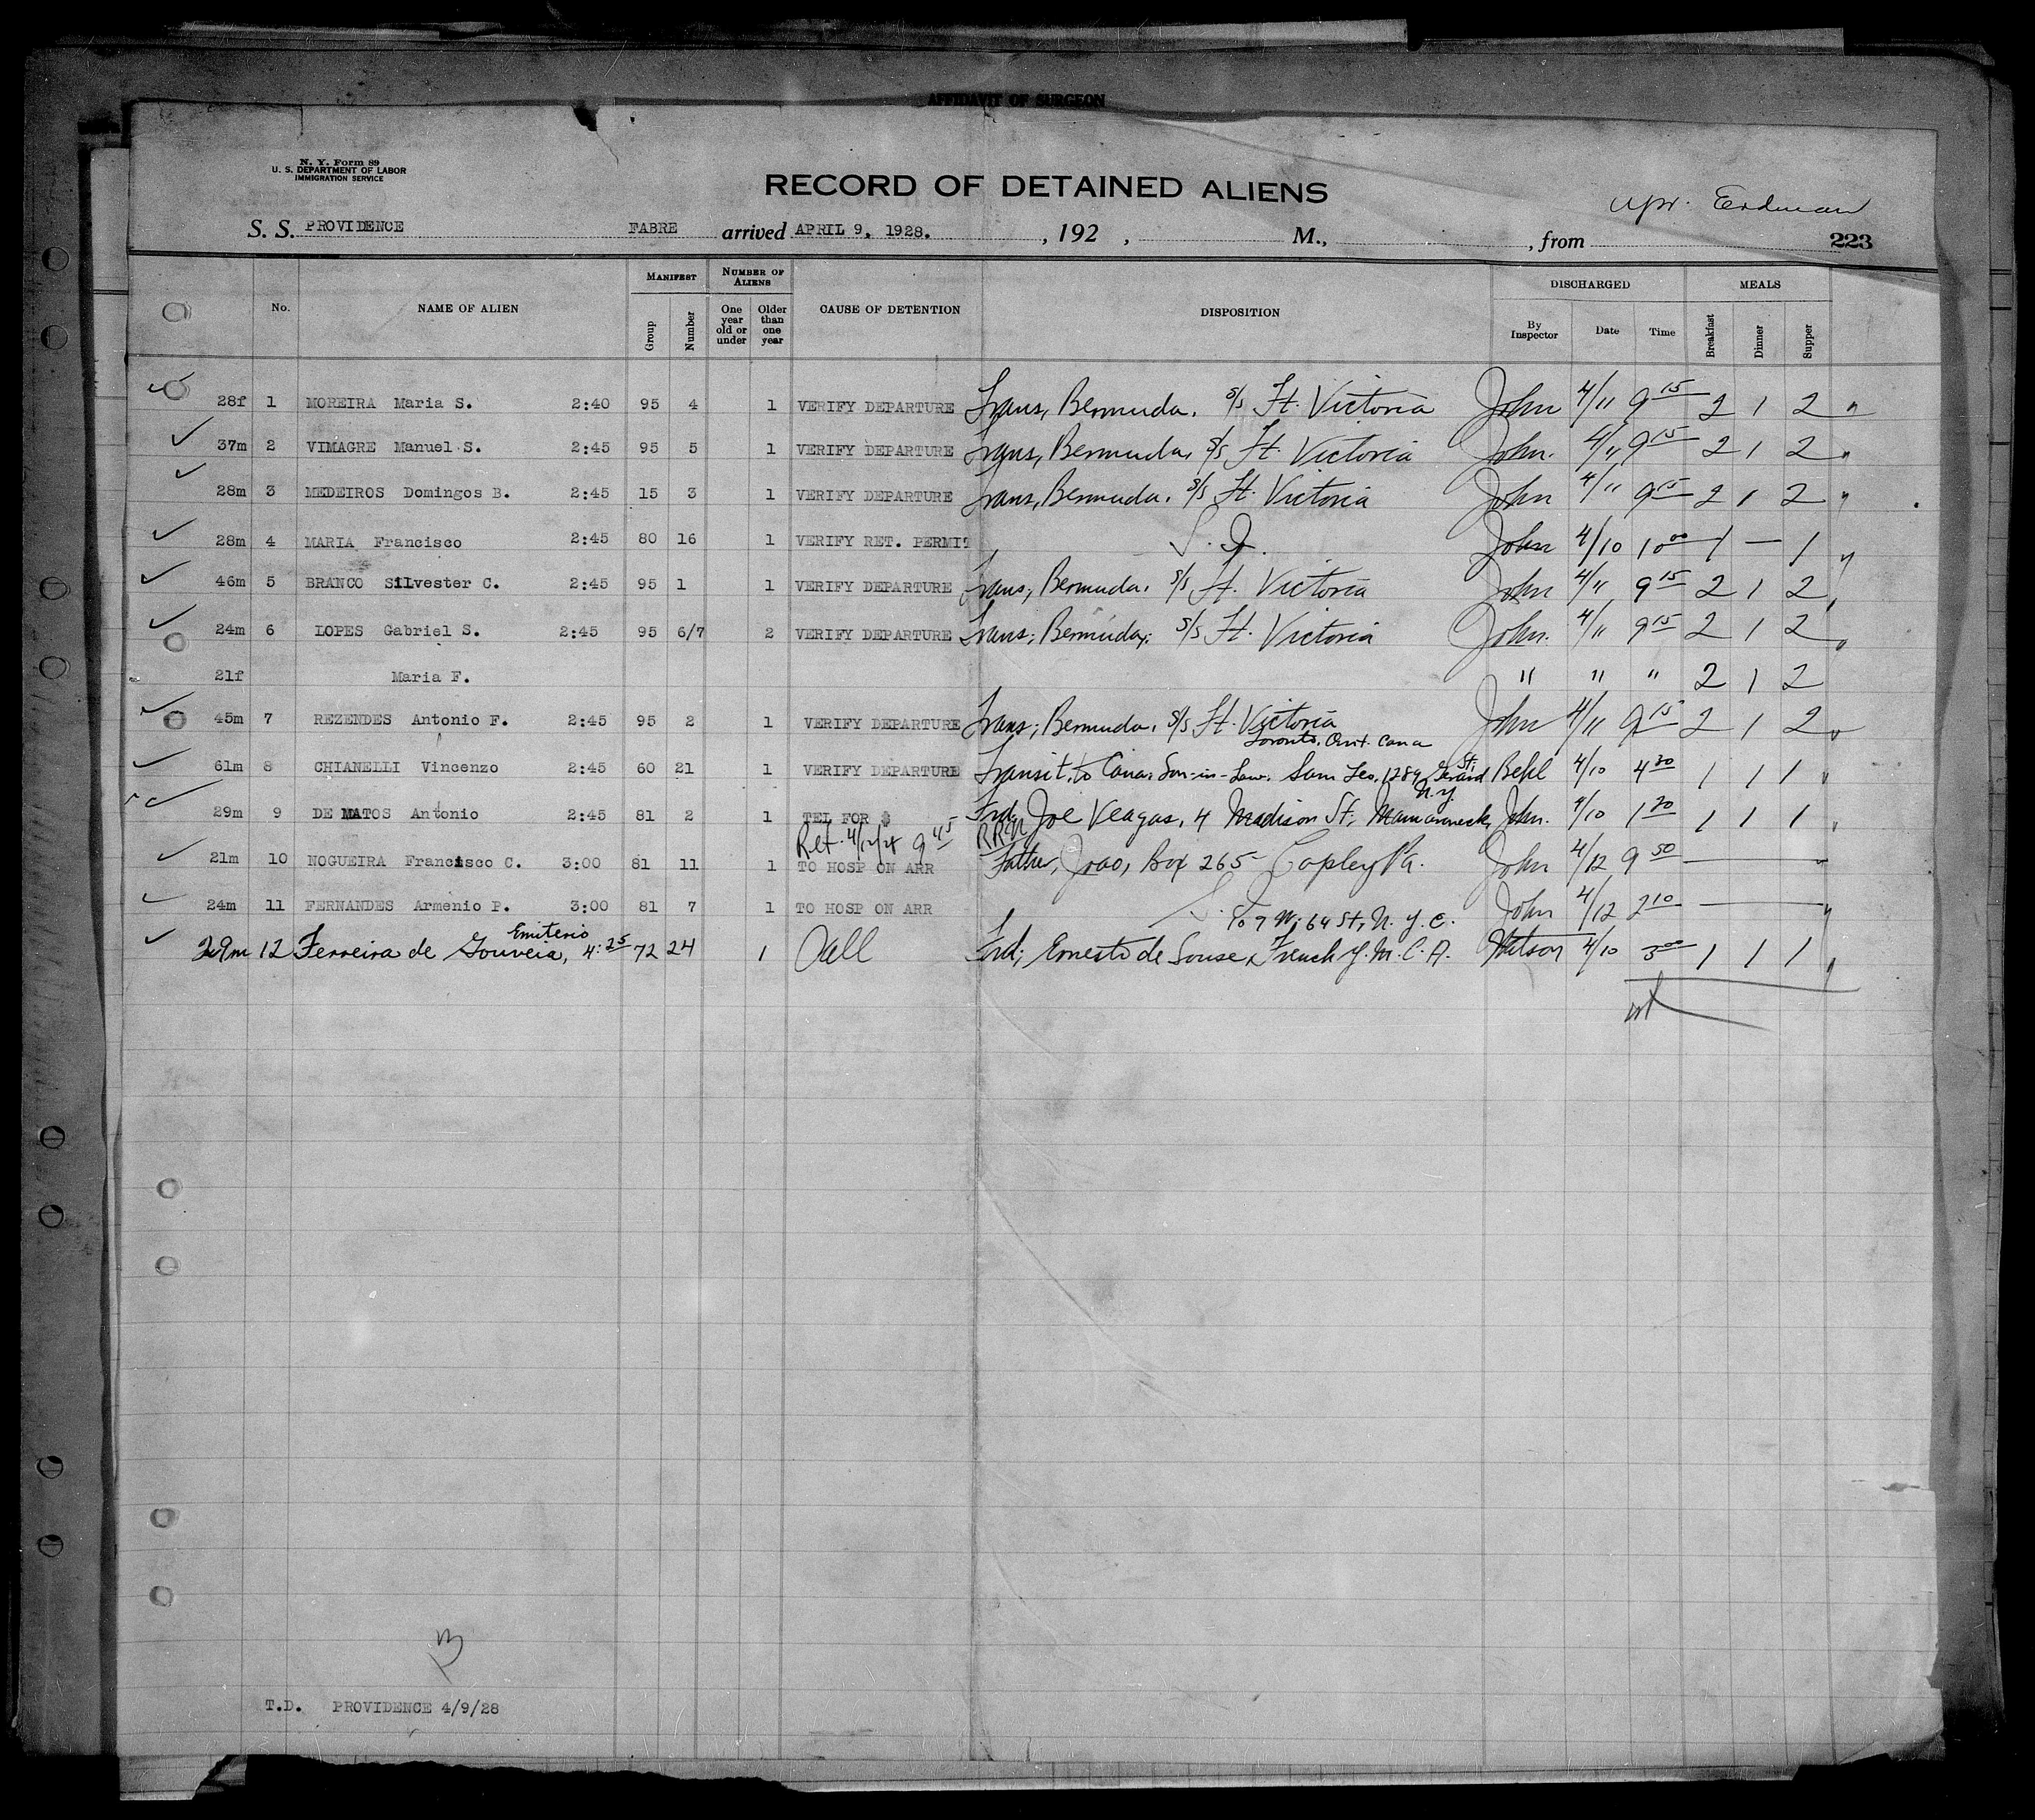 AFFIDAVIT OF SURGEON
N. Y. Form 89
U. S. DEPARTMENT OF LABOR
IMMIGRATION SERVICE
RECORD OF DETAINED ALIENS
Erdman
S. S. PROVIDENCE FABRE arrived APRIL 9, 1928. , 192 , M., , from 223
No. NAME OF ALIEN MANIFEST Group Number NUMBER OF ALIENS One year old or under Older than one year CAUSE OF DETENTION DISPOSITION DISCHARGED By Inspector Date Time MEALS Breakfast Dinner Supper
28f 1 MOREIRA Maria S. 2:40 95 4 1 VERIFY DEPARTURE Trans, Bermuda. s/s Ft. Victoria John 4/11 9 15 2 1 2 "
37m 2 VIMAGRE Manuel S. 2:45 95 5 1 VERIFY DEPARTURE Trans, Bermuda, s/s Ft. Victoria John. 4/11 9 15 2 1 2 "
28m 3 MEDEIROS Domingos B. 2:45 15 3 1 VERIFY DEPARTURE Trans, Bermuda. s/s Ft. Victoria John 4/11 9 15 2 1 2 "
28m 4 MARIA Francisco 2:45 80 16 1 VERIFY RET. PERMIT S. I. John 4/10 10 00 1 — 1 "
46m 5 BRANCO Silvester C. 2:45 95 1 1 VERIFY DEPARTURE Trans, Bermuda. s/s Ft. Victoria John 4/11 9 15 2 1 2 "
24m 6 LOPES Gabriel S. 2:45 95 6/7 2 VERIFY DEPARTURE Trans; Bermuda; s/s Ft. Victoria John. 4/11 9 15 2 1 2 "
21f Maria F. " " " 2 1 2
45m 7 REZENDES Antonio F. 2:45 95 2 1 VERIFY DEPARTURE Trans; Bermuda. s/s Ft. Victoria John 4/11 9 15 2 1 2 "
Toronto, Ont. Cana
61m 8 CHIANELLI Vincenzo 2:45 60 21 1 VERIFY DEPARTURE Transit, to Cana. Son-in-Law. Sam Leo, 1289 Gerard St. Behl 4/10 4 30 1 1 1 "
N.Y.
29m 9 DE MATOS Antonio 2:45 81 2 1 TEL FOR $ Frd, Joe Veagas, 4 Madison St, Mamaroneck, John. 4/10 1 20 1 1 1 "
Ret. 4/12/28 9 45 RRN
21m 10 NOGUEIRA Francisco C. 3:00 81 11 1 TO HOSP ON ARR Father, Joao, Box 265 Copley Pa. John 4/12 9 50 — "
24m 11 FERNANDES Armenio P. 3:00 81 7 1 TO HOSP ON ARR S. I. John 4/12 2 10 — "
to 7 W. 64 St, N. Y. C.
29m 12 Ferreira de Gouveia, Emiterio 4:25 72 24 1 Call Frd; Ernesto de Souse, French Y. M. C. A. Watson 4/10 3 00 1 1 1 "
13
T.D. PROVIDENCE 4/9/28